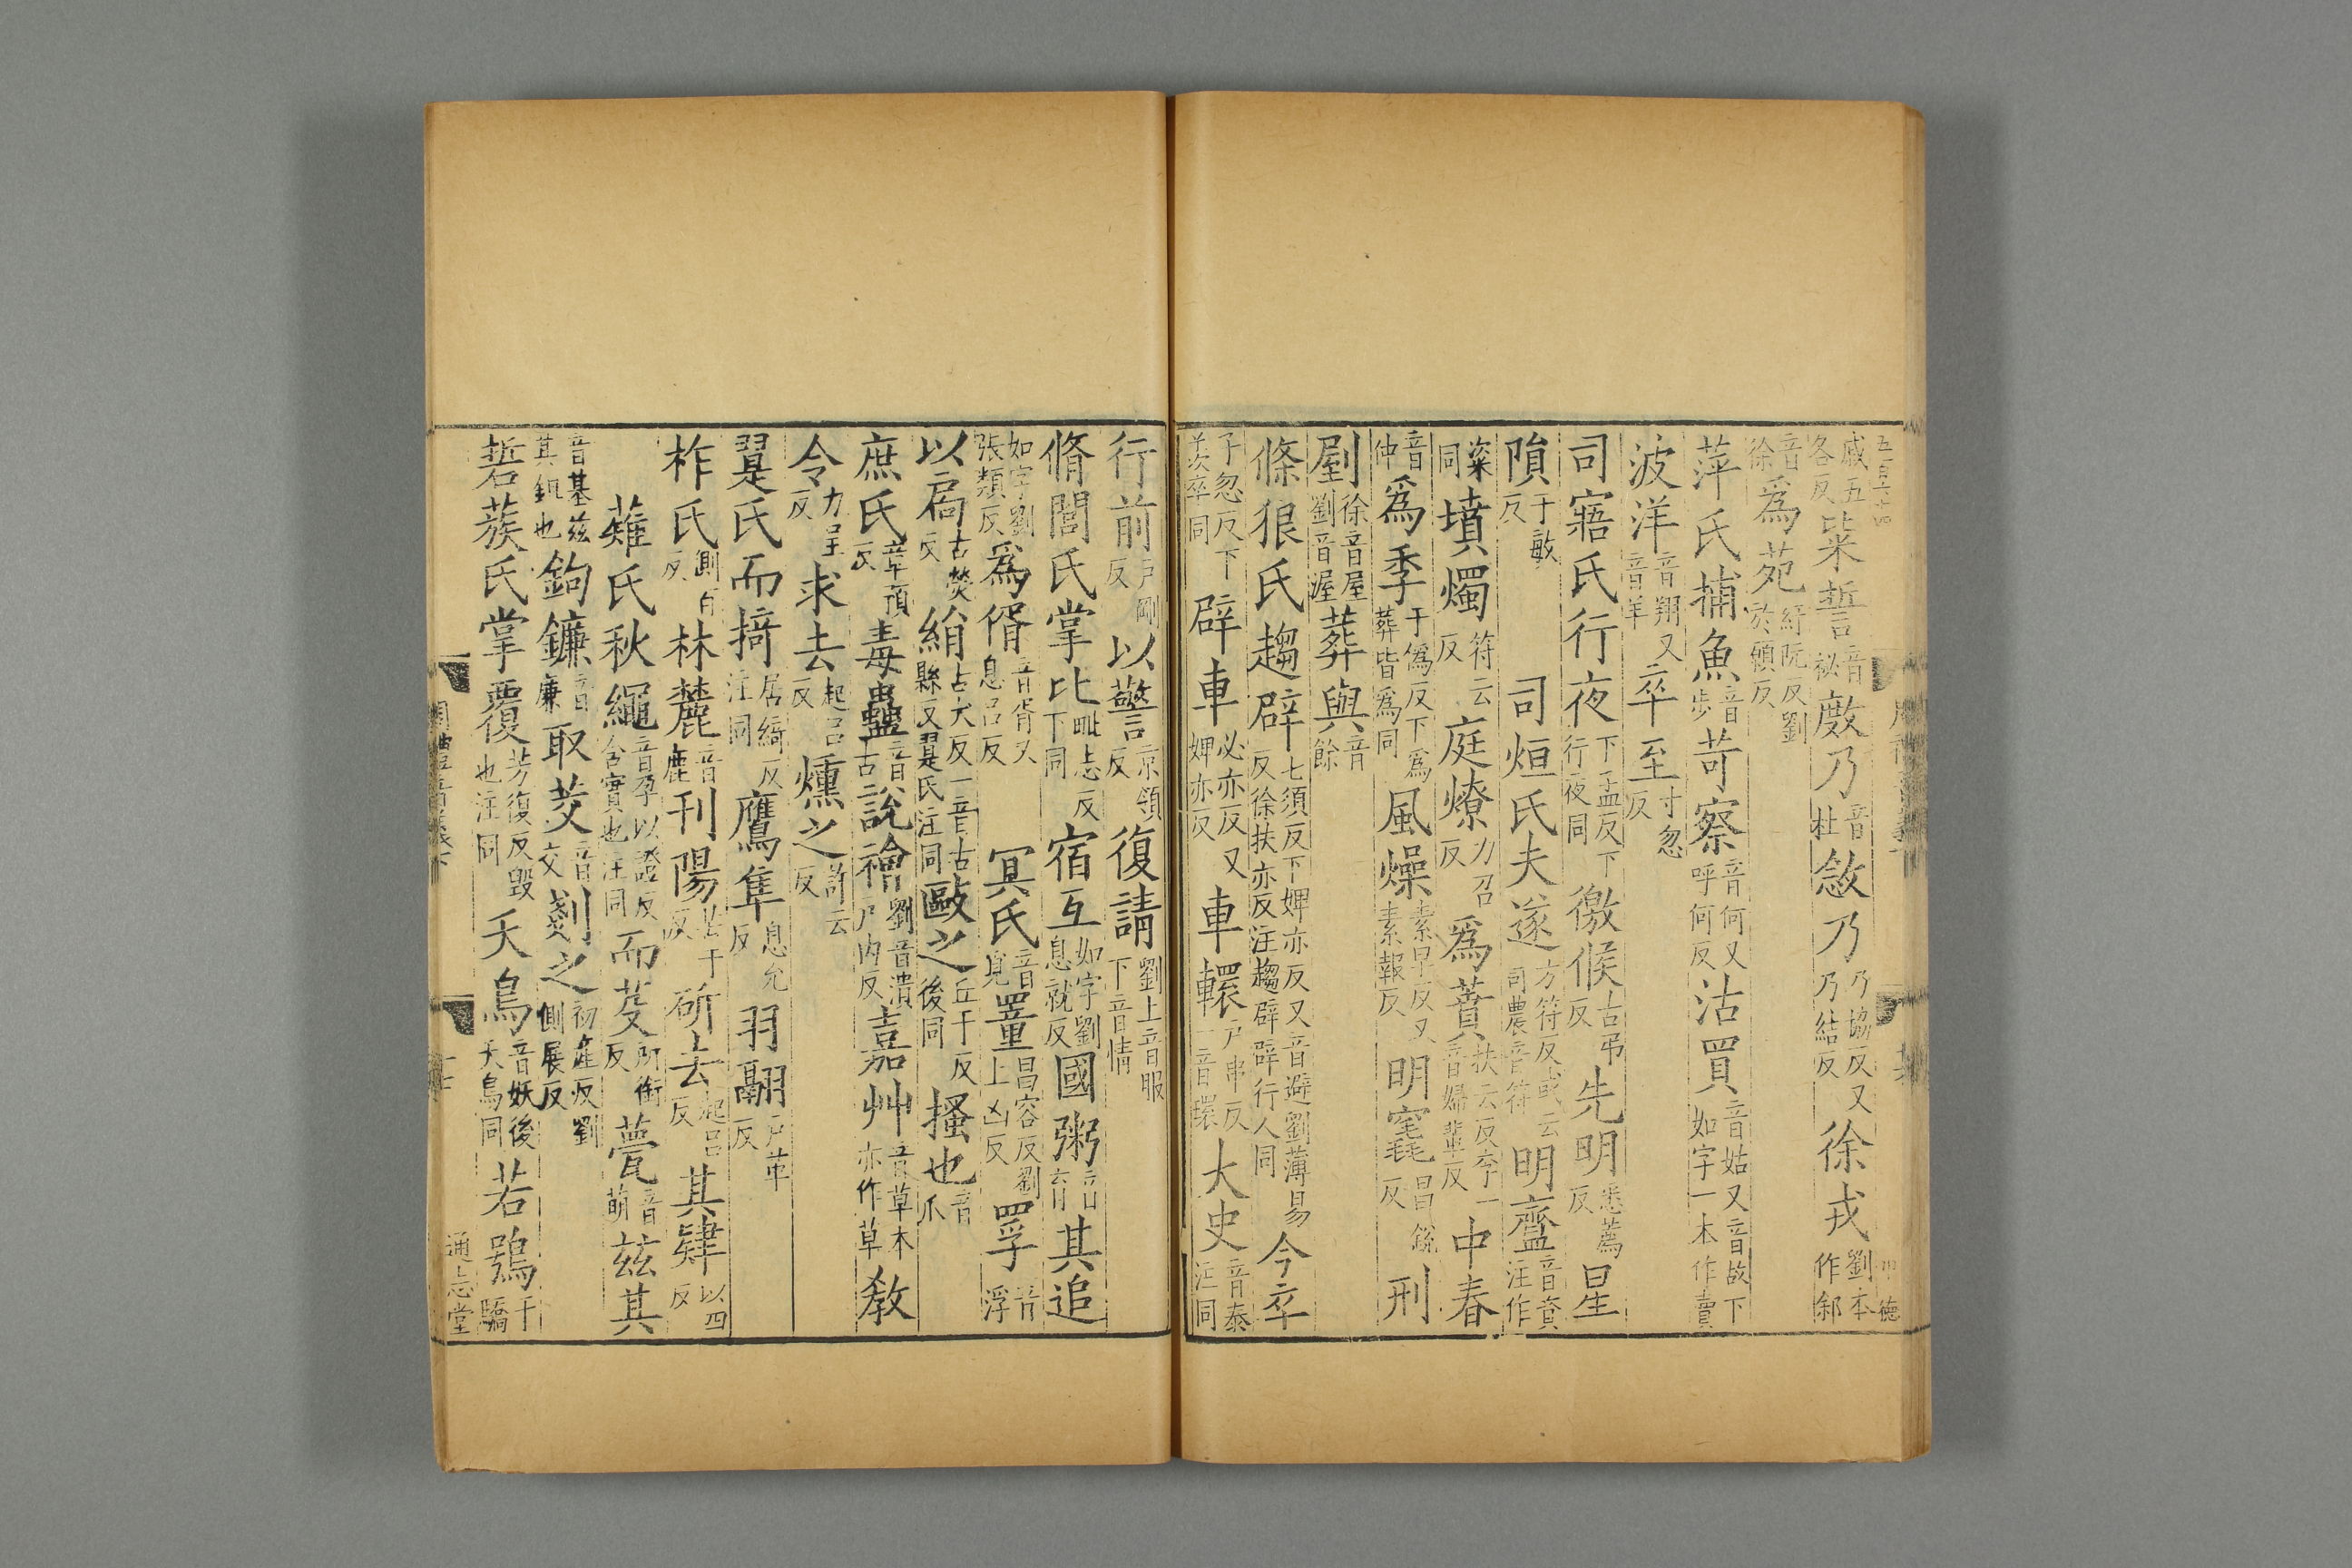 戚五各反粊誓音祕敜乃音杜敜乃乃協反又乃結反徐戎劉本作郐
音徐爲苑紆阮反劉於願反
萍氏捕魚音步苛察音何又呼何反沽買音姑又音故下如字一本作賣
波洋音翔又音羊卒至寸忽反
司寤氏行夜下孟反下行夜同徼候古弔反先明悉薦反星
隕于敏反司烜氏夫遂方符反或云司農音符明齍音資注作
粢同墳燭符云反庭燎力召反爲蕡扶云反李一音婦輩反中春
音仲爲季于僞反下爲葬皆爲同風燥素早反又素報反明竁昌銳反刑
剭徐音屋劉音渥葬與音餘
條狼氏趨辟七須反下婢亦反又音避劉薄易反徐扶亦反注趨辟辟行人同今卒
子忽反下羨卒同辟車必亦反又婢亦反車轘戶串反一音環大史音泰注同
行前戶剛反以警京領反復請劉上音服下音情
脩閭氏掌比毗志反下同宿互如字劉息就反國粥音育其追
如字劉張類反爲偦音胥又息呂反冥氏音覓罿昌容反劉上凶反罦音浮
以扃古熒反絹古犬反一音古縣反翨氏注同敺之丘于反後同搔也音爪
庶氏章預反毒蠱音古說禬劉音潰戶內反嘉艸音草本亦作草教
令力呈反求去起呂反燻之許云反
翨氏而掎居綺反注同鷹隼息允反羽翮戶革反
柞氏側百反林麓音鹿刊陽苦干反斫去起呂反其肄以四反
薙氏秋繩音孕以證反含實也注同而芟所銜反薨音萌兹其
音基兹其鉏也鉤鐮音廉取茭音交剗之初產反劉側展反
硩蔟氏掌覆芳復反毀也注同夭鳥音妖後夭鳥同若鴞于驕
通志堂